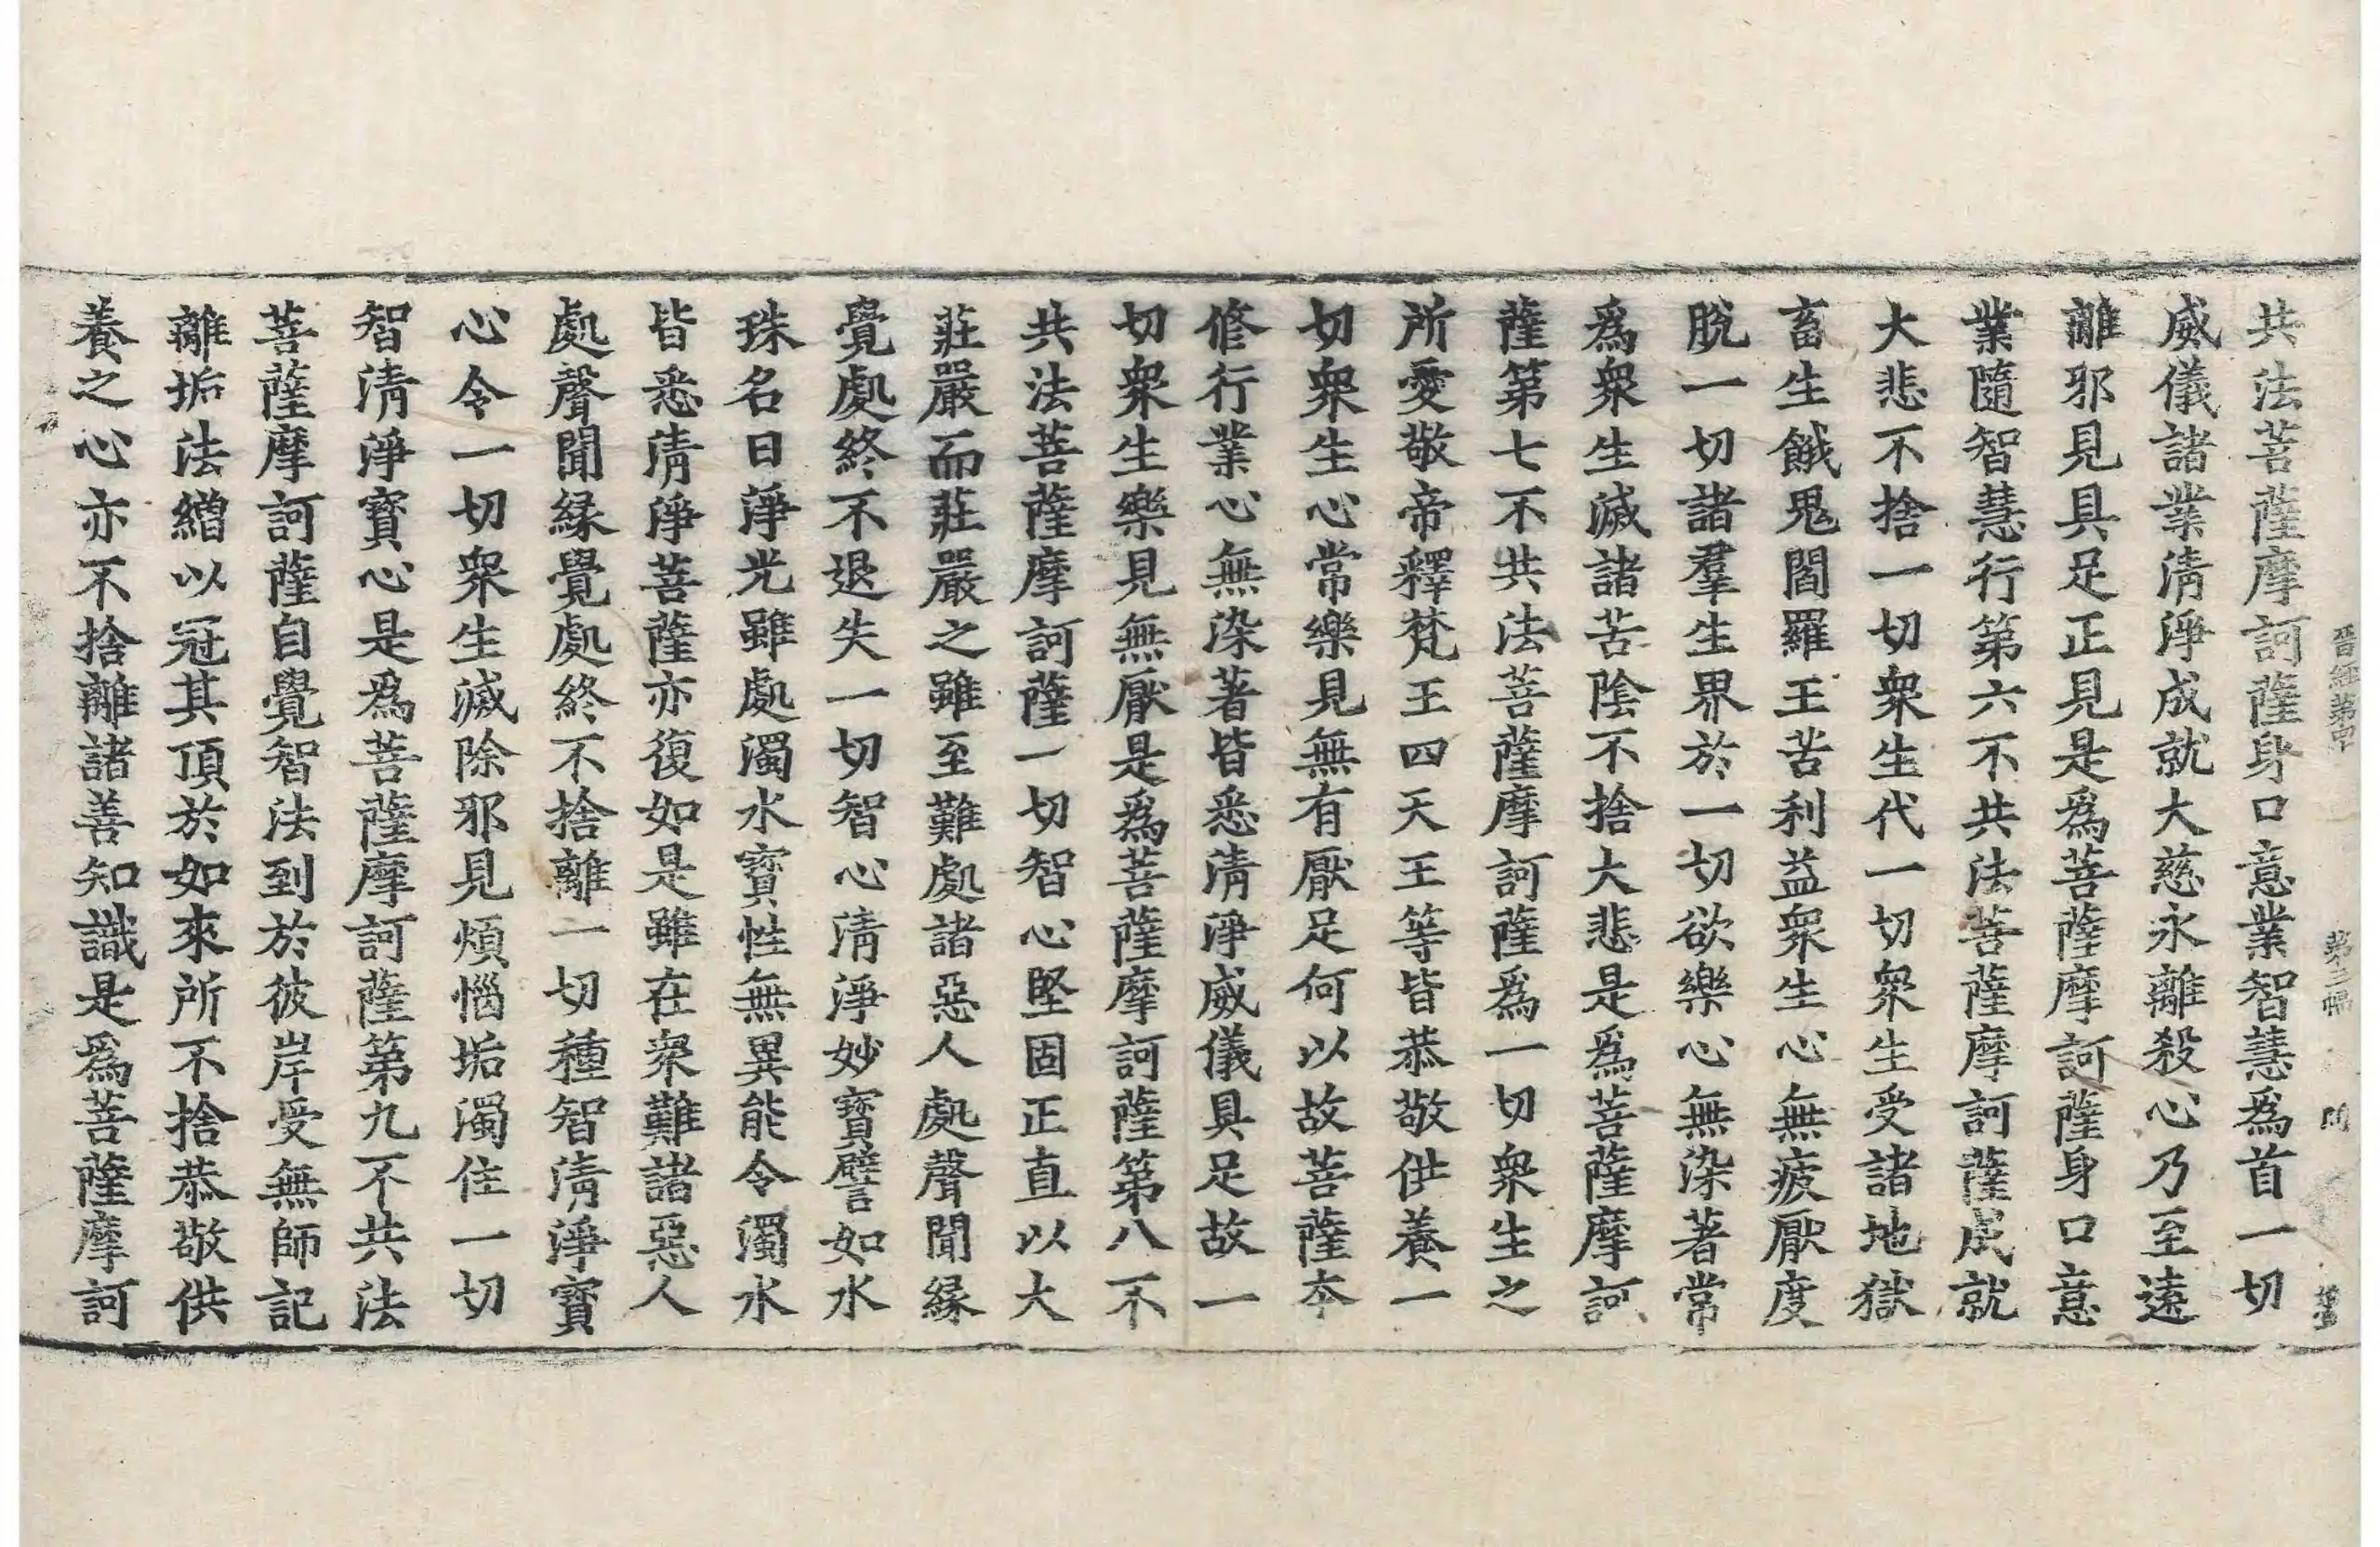 晉經第 第三幅 問
共法菩薩摩訶薩身口意業智慧爲首一切
威儀諸業清淨成就大慈永離殺心乃至遠
離邪見具足正見是爲菩薩摩訶薩身口意
業隨智慧行第六不共法菩薩摩訶薩成就
大悲不捨一切衆生代一切衆生受諸地獄
畜生餓鬼閻羅王苦利益衆生心無疲厭度
脫一切諸羣生界於一切欲樂心無染著常
爲衆生滅諸苦陰不捨大悲是爲菩薩摩訶
薩第七不共法菩薩摩訶薩爲一切衆生之
所愛敬帝釋梵王四天王等皆恭敬供養一
切衆生心常樂見無有厭足何以故菩薩夲
修行業心無染著皆悉清淨威儀具足故一
切衆生樂見無厭是爲菩薩摩訶薩第八不
共法菩薩摩訶薩一切智心堅固正直以大
莊嚴而莊嚴之雖至難處諸惡人處聲聞緣
覺處終不退失一切智心清淨妙寶譬如水
珠名曰淨光雖處濁水寶性無異能令濁水
皆悉清淨菩薩亦復如是雖在衆難諸惡人
處聲聞緣覺處終不捨離一切種智清淨寶
心令一切衆生滅除邪見煩惱垢濁住一切
智清淨寶心是爲菩薩摩訶薩第九不共法
菩薩摩訶薩自覺智法到於彼岸受無師記
離垢法繒以冠其頂於如來所不捨恭敬供
養之心亦不捨離諸善知識是爲菩薩摩訶